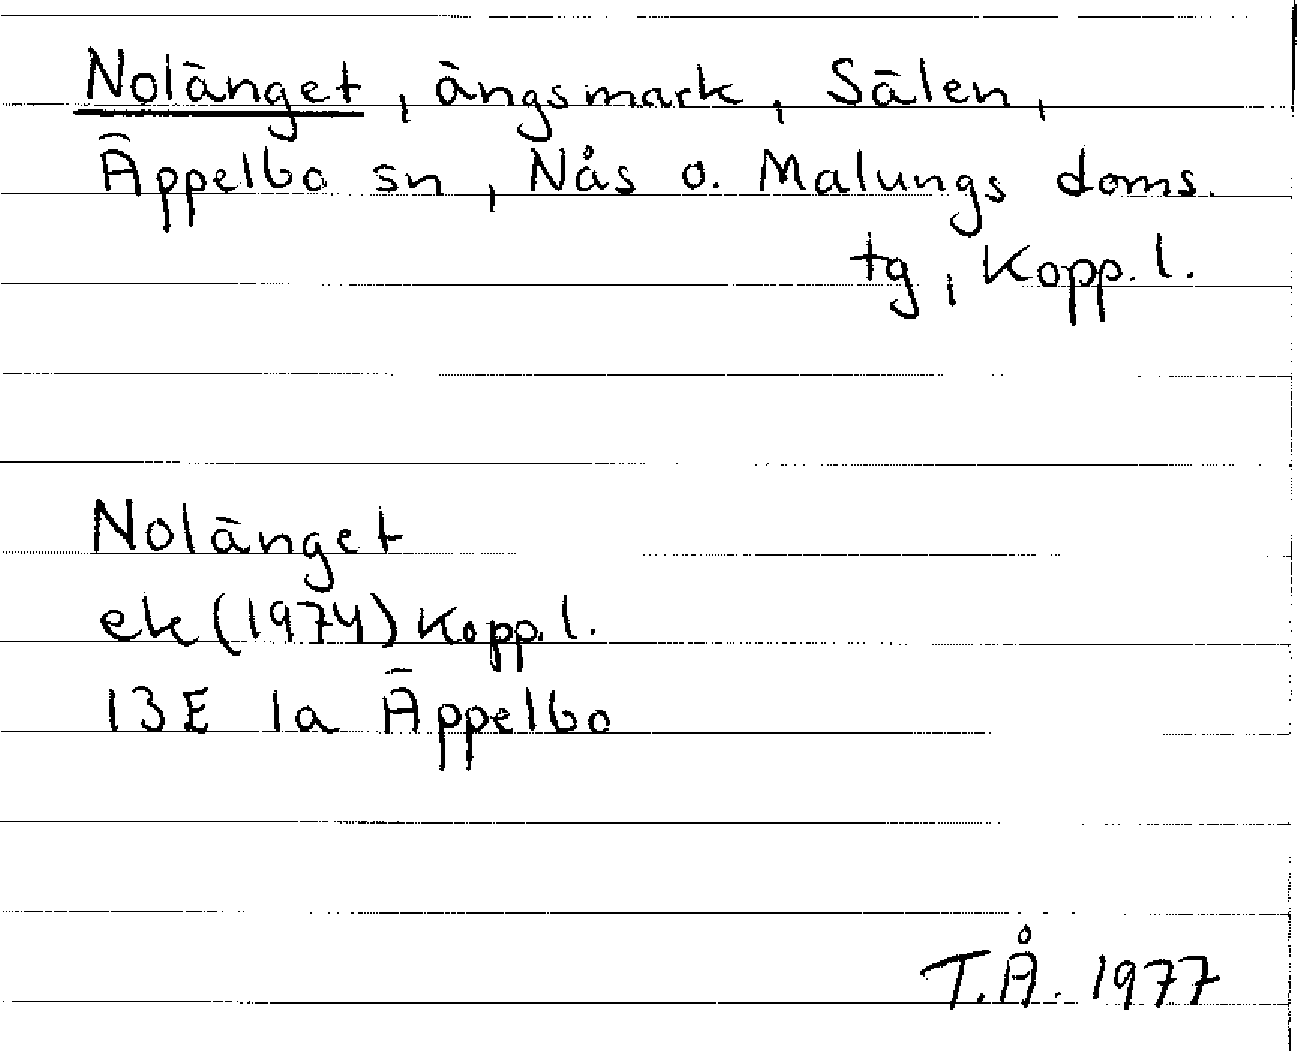 Nolänget, ängsmark, Sälen,
Äppelbo sn, Nås o. Malungs doms.
tg, Kopp. l.
Nolänget
ek (1974) Kopp. l.
13E 1a Äppelbo
T.Å. 1977